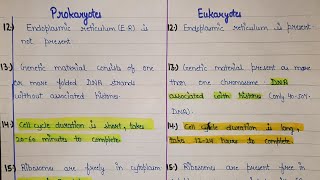 Prokaryotes
Eukaryotes
12.) Endoplasmic reticulum (E.R) is
not present.
12.) Endoplasmic reticulum is present
13.) Genetic material consists of one
or more folded DNA strands
without associated histone.
13.) Genetic material present as more
than one chromosome DNA
associated with histone (only 40-50%
DNA).
14.) Cell cycle duration is short, takes
20-60 minutes to complete
14.) Cell cycle duration is long,
takes 12-24 hours to complete
15.) Ribosomes are freely in cytoplasm
15.) Ribosomes are present free in